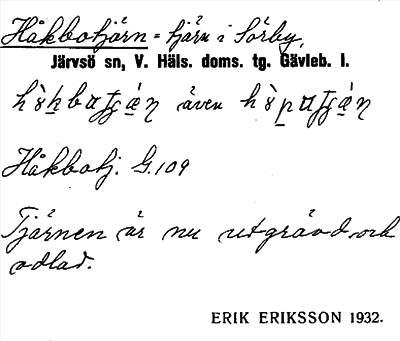 Håkbotjärn = tjärn i Sörby,
Järvsö sn, V. Häls. doms. tg. Gävleb. l.
även
Håkbotj. G.109
Tjärnen är nu utgrävd och
odlad.
ERIK ERIKSSON 1932.